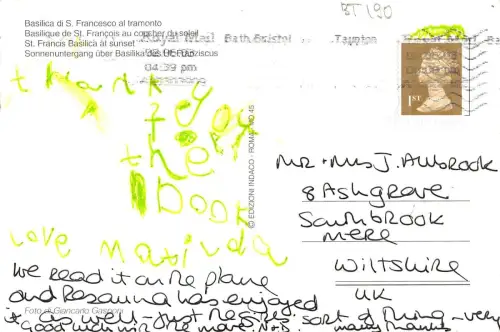 BT 190
Basilica di S. Francesco al tramonto
Basilique de St. François au coucher du soleil
St. Francis Basilica at sunset
Sonnenuntergang über Basilika des St. Franziscus
Royal Mail Bath, Bristol Taunton Royal Mail
04:39 pm
1ST
thank you
for
the
book
Love Matilda
© EDIZIONI INDACO - ROMA
Mr + Mrs J.
8 Ashgrove
MERE
Wiltshire
UK
We read it on the plane
and Rosanna has enjoyed
it as well - just the right sort of thing - very
many thanks
Foto di Giancarlo Gasponi